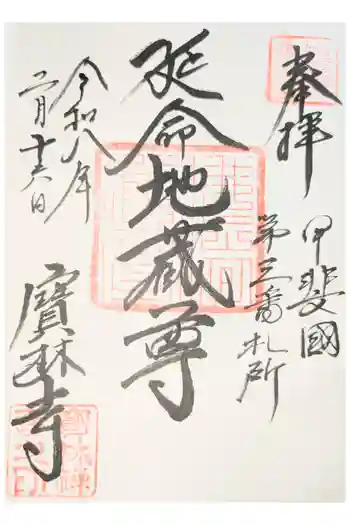 奉拝
甲斐國
第三番札所
延命地蔵尊
令和八年
二月十六日
寶林寺